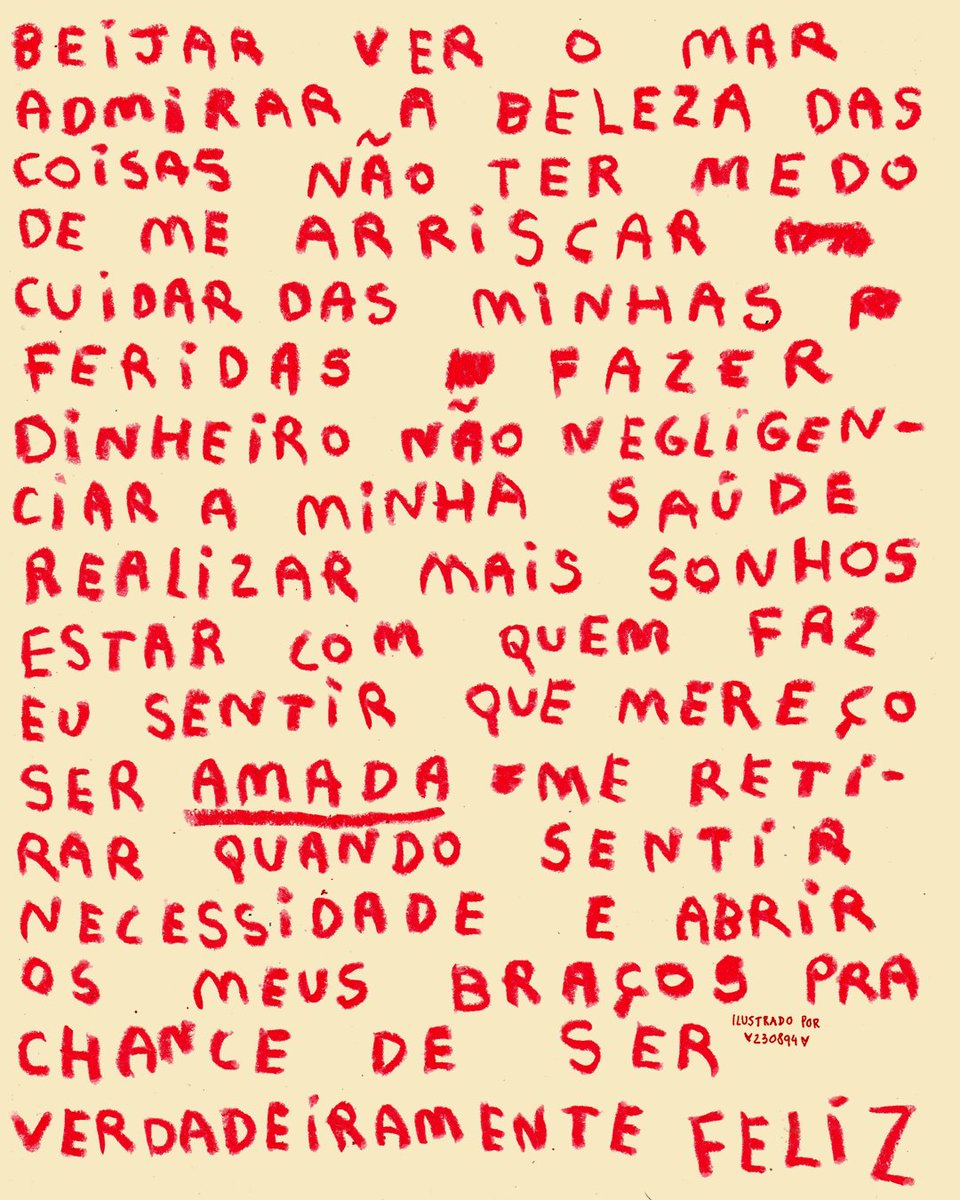 BEIJAR VER O MAR
ADMIRAR A BELEZA DAS
COISAS NÃO TER MEDO
DE ME ARRISCAR
CUIDAR DAS MINHAS
FERIDAS FAZER
DINHEIRO NÃO NEGLIGEN-
CIAR A MINHA SAÚDE
REALIZAR MAIS SONHOS
ESTAR COM QUEM FAZ
EU SENTIR QUE MEREÇO
SER AMADA ME RETI-
RAR QUANDO SENTIR
NECESSIDADE E ABRIR
OS MEUS BRAÇOS PRA
CHANCE DE SER
ILUSTRADO POR
♥230894♥
VERDADEIRAMENTE FELIZ